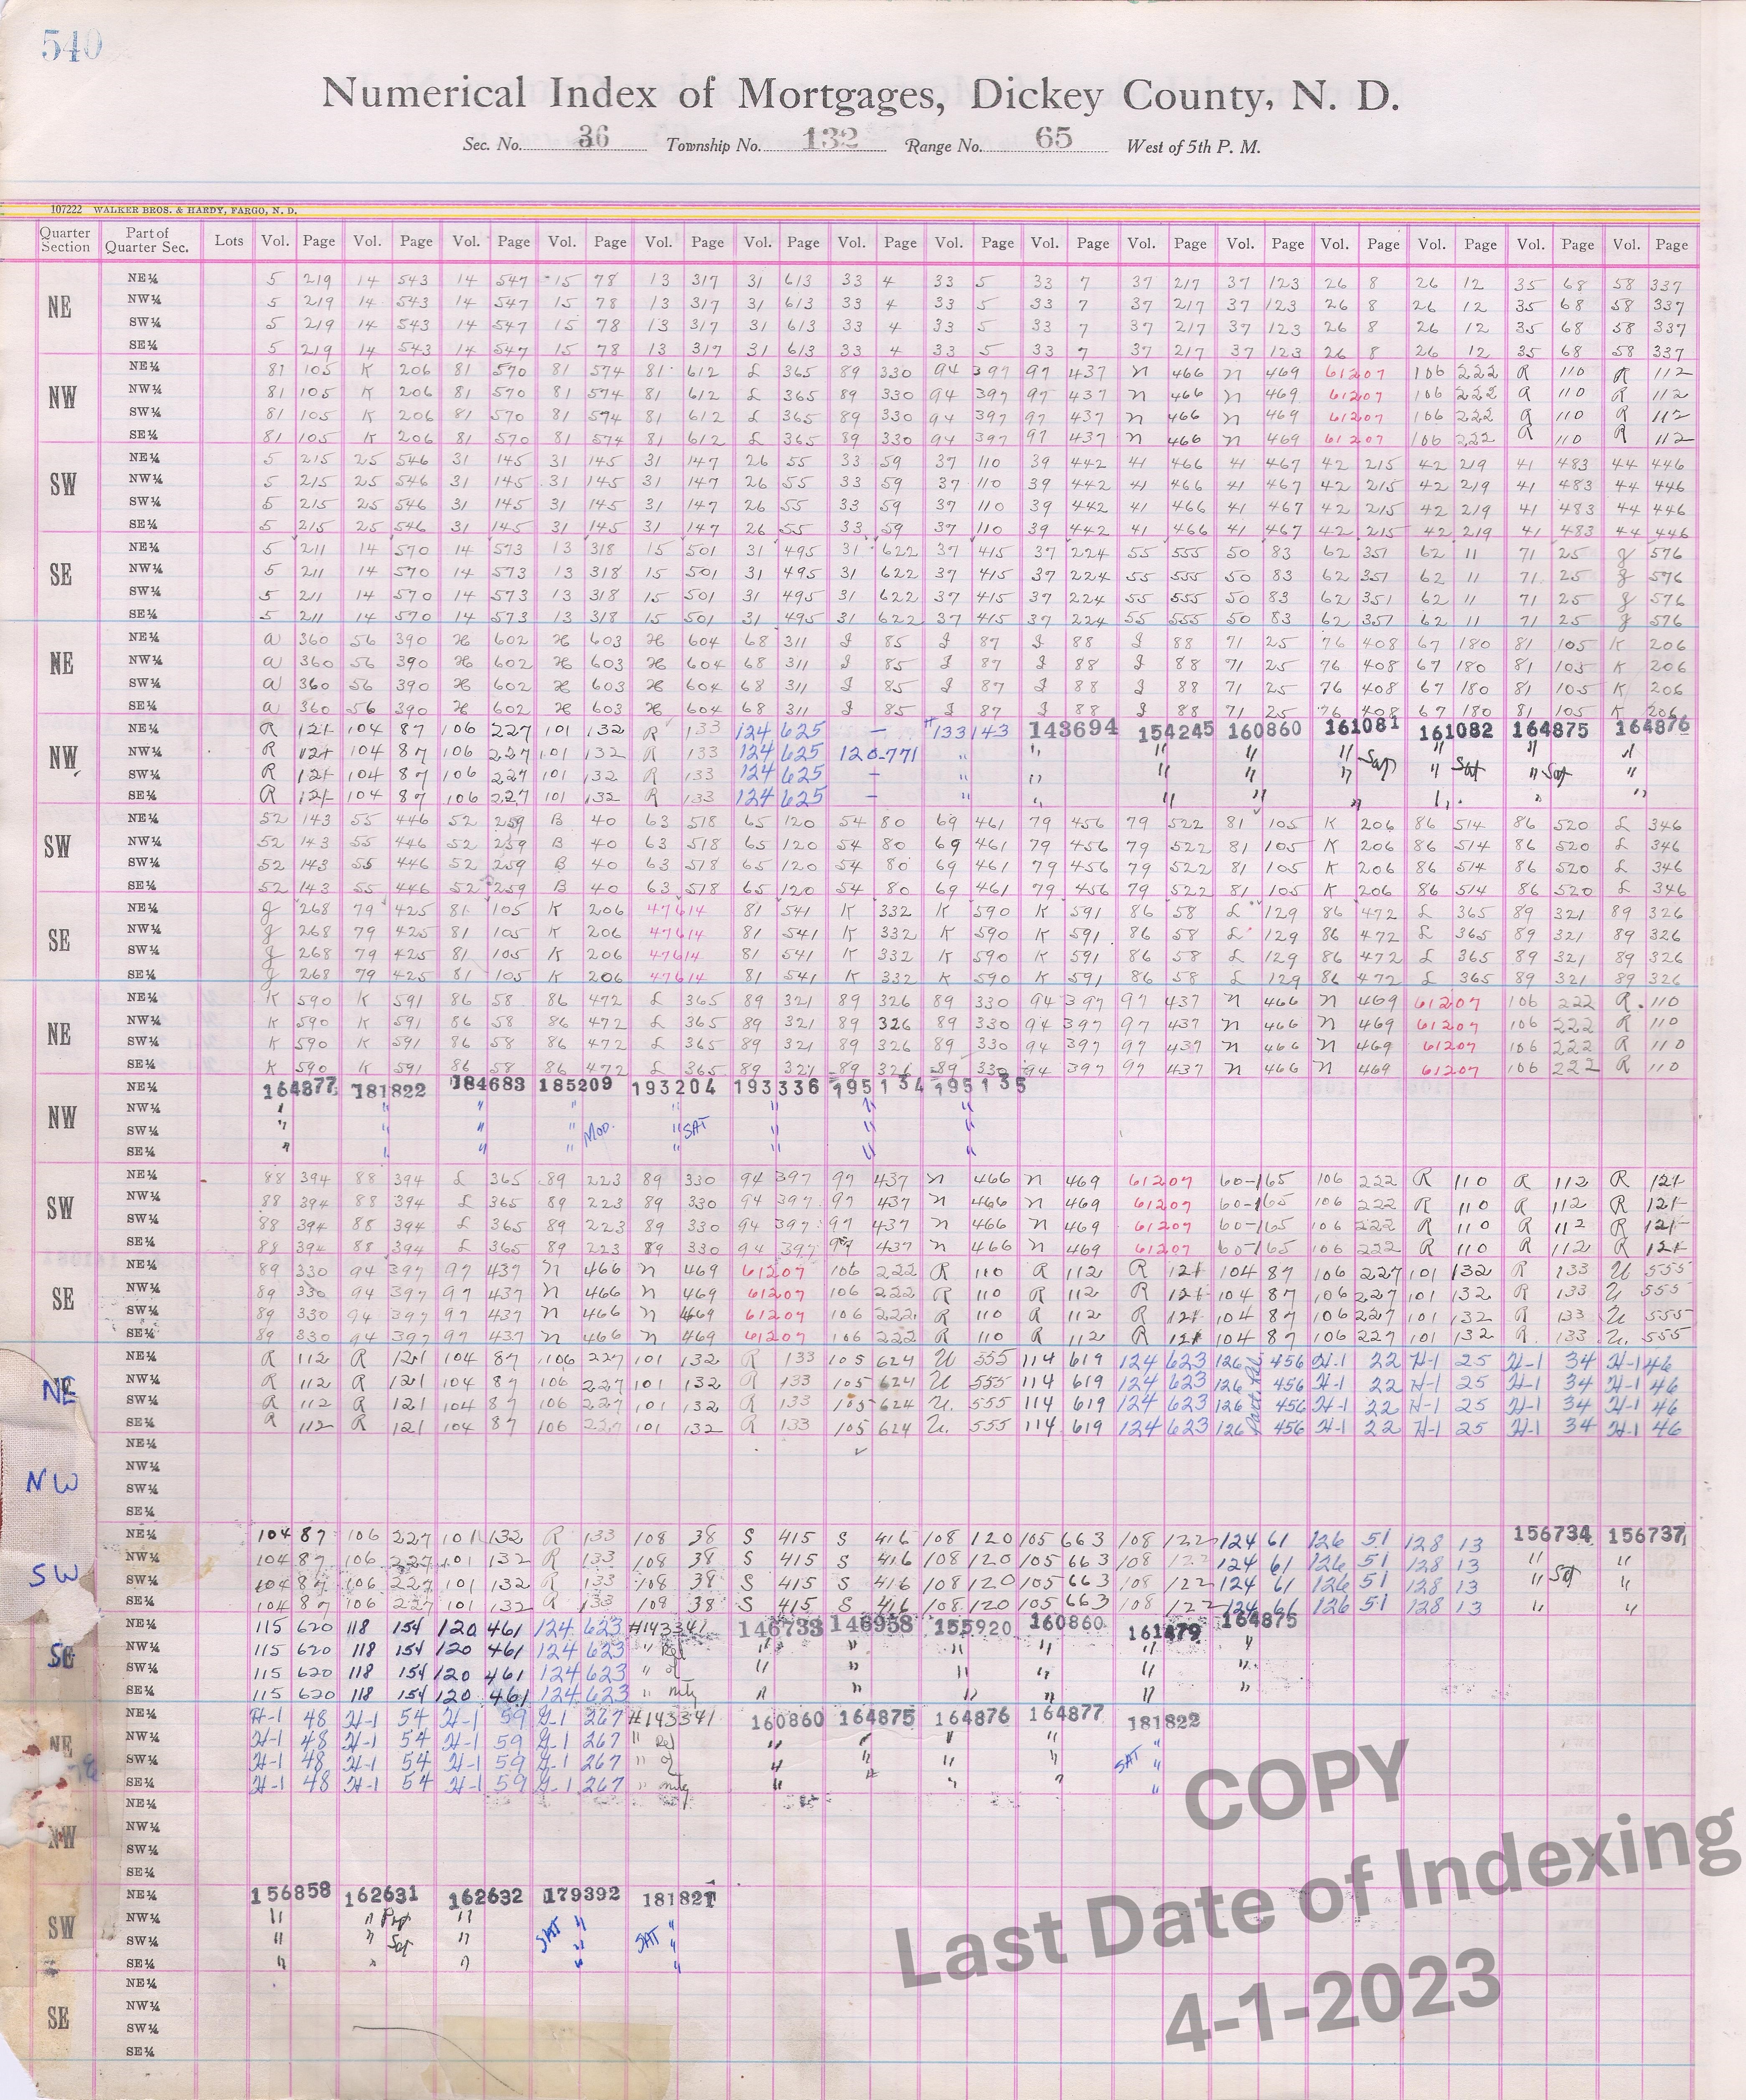 540
Numerical Index of Mortgages, Dickey County, N. D.
Sec. No. 36 Township No. 132 Range No. 65 West of 5th P. M.
107222 WALKER BROS. & HARDY, FARGO, N. D.
Quarter Section Part of Quarter Sec. Lots Vol. Page Vol. Page Vol. Page Vol. Page Vol. Page Vol. Page Vol. Page Vol. Page Vol. Page Vol. Page Vol. Page Vol. Page Vol. Page Vol. Page Vol. Page
NE
NE¼ 5 219 14 543 14 547 15 78 13 317 31 613 33 4 33 5 33 7 37 217 37 123 26 8 26 12 35 68 58 337
NW¼ 5 219 14 543 14 547 15 78 13 317 31 613 33 4 33 5 33 7 37 217 37 123 26 8 26 12 35 68 58 337
SW¼ 5 219 14 543 14 547 15 78 13 317 31 613 33 4 33 5 33 7 37 217 37 123 26 8 26 12 35 68 58 337
SE¼ 5 219 14 543 14 547 15 78 13 317 31 613 33 4 33 5 33 7 37 217 37 123 26 8 26 12 35 68 58 337
NW
NE¼ 81 105 K 206 81 570 81 574 81 612 L 365 89 330 94 397 97 437 N 466 N 469 61207 106 222 R 110 R 112
NW¼ 81 105 K 206 81 570 81 574 81 612 L 365 89 330 94 397 97 437 N 466 N 469 61207 106 222 R 110 R 112
SW¼ 81 105 K 206 81 570 81 574 81 612 L 365 89 330 94 397 97 437 N 466 N 469 61207 106 222 R 110 R 112
SE¼ 81 105 K 206 81 570 81 574 81 612 L 365 89 330 94 397 97 437 N 466 N 469 61207 106 222 R 110 R 112
SW
NE¼ 5 215 25 546 31 145 31 145 31 147 26 55 33 59 37 110 39 442 41 466 41 467 42 215 42 219 41 483 44 446
NW¼ 5 215 25 546 31 145 31 145 31 147 26 55 33 59 37 110 39 442 41 466 41 467 42 215 42 219 41 483 44 446
SW¼ 5 215 25 546 31 145 31 145 31 147 26 55 33 59 37 110 39 442 41 466 41 467 42 215 42 219 41 483 44 446
SE¼ 5 215 25 546 31 145 31 145 31 147 26 55 33 59 37 110 39 442 41 466 41 467 42 215 42 219 41 483 44 446
SE
NE¼ 5 211 14 570 14 573 13 318 15 501 31 495 31 622 37 415 37 224 55 555 50 83 62 351 62 11 71 25 g 576
NW¼ 5 211 14 570 14 573 13 318 15 501 31 495 31 622 37 415 37 224 55 555 50 83 62 351 62 11 71 25 g 576
SW¼ 5 211 14 570 14 573 13 318 15 501 31 495 31 622 37 415 37 224 55 555 50 83 62 351 62 11 71 25 g 576
SE¼ 5 211 14 570 14 573 13 318 15 501 31 495 31 622 37 415 37 224 55 555 50 83 62 351 62 11 71 25 g 576
NE
NE¼ a 360 56 390 H 602 H 603 H 604 68 311 I 85 I 87 I 88 I 88 71 25 76 408 67 180 81 105 K 206
NW¼ a 360 56 390 H 602 H 603 H 604 68 311 I 85 I 87 I 88 I 88 71 25 76 408 67 180 81 105 K 206
SW¼ a 360 56 390 H 602 H 603 H 604 68 311 I 85 I 87 I 88 I 88 71 25 76 408 67 180 81 105 K 206
SE¼ a 360 56 390 H 602 H 603 H 604 68 311 I 85 I 87 I 88 I 88 71 25 76 408 67 180 81 105 K 206
NW
NE¼ R 121 104 87 106 227 101 132 R 133 124 625 — #133143 143694 154245 160860 161081 161082 164875 164876
NW¼ R 121 104 87 106 227 101 132 R 133 124 625 120-771 " " " " " " " "
SW¼ R 121 104 87 106 227 101 132 R 133 124 625 — " " " " " Sat " Sat " Sat "
SE¼ R 121 104 87 106 227 101 132 R 133 124 625 — " " " " " " " "
SW
NE¼ 52 143 55 446 52 259 B 40 63 518 65 120 54 80 69 461 79 456 79 522 81 105 K 206 86 514 86 520 L 346
NW¼ 52 143 55 446 52 259 B 40 63 518 65 120 54 80 69 461 79 456 79 522 81 105 K 206 86 514 86 520 L 346
SW¼ 52 143 55 446 52 259 B 40 63 518 65 120 54 80 69 461 79 456 79 522 81 105 K 206 86 514 86 520 L 346
SE¼ 52 143 55 446 52 259 B 40 63 518 65 120 54 80 69 461 79 456 79 522 81 105 K 206 86 514 86 520 L 346
SE
NE¼ g 268 79 425 81 105 K 206 47614 81 541 K 332 K 590 K 591 86 58 L 129 86 472 L 365 89 321 89 326
NW¼ g 268 79 425 81 105 K 206 47614 81 541 K 332 K 590 K 591 86 58 L 129 86 472 L 365 89 321 89 326
SW¼ g 268 79 425 81 105 K 206 47614 81 541 K 332 K 590 K 591 86 58 L 129 86 472 L 365 89 321 89 326
SE¼ g 268 79 425 81 105 K 206 47614 81 541 K 332 K 590 K 591 86 58 L 129 86 472 L 365 89 321 89 326
NE
NE¼ K 590 K 591 86 58 86 472 L 365 89 321 89 326 89 330 94 397 97 437 N 466 N 469 61207 106 222 R 110
NW¼ K 590 K 591 86 58 86 472 L 365 89 321 89 326 89 330 94 397 97 437 N 466 N 469 61207 106 222 R 110
SW¼ K 590 K 591 86 58 86 472 L 365 89 321 89 326 89 330 94 397 97 437 N 466 N 469 61207 106 222 R 110
SE¼ K 590 K 591 86 58 86 472 L 365 89 321 89 326 89 330 94 397 97 437 N 466 N 469 61207 106 222 R 110
NW
NE¼ 164877 181822 184683 185209 193204 193336 195134 195135
NW¼ " " " " " " " "
SW¼ " " " " Mod. " SAT " " "
SE¼ " " " " " " " "
SW
NE¼ 88 394 88 394 L 365 89 223 89 330 94 397 97 437 N 466 N 469 61207 60-165 106 222 R 110 R 112 R 121
NW¼ 88 394 88 394 L 365 89 223 89 330 94 397 97 437 N 466 N 469 61207 60-165 106 222 R 110 R 112 R 121
SW¼ 88 394 88 394 L 365 89 223 89 330 94 397 97 437 N 466 N 469 61207 60-165 106 222 R 110 R 112 R 121
SE¼ 88 394 88 394 L 365 89 223 89 330 94 397 97 437 N 466 N 469 61207 60-165 106 222 R 110 R 112 R 121
SE
NE¼ 89 330 94 397 97 437 N 466 N 469 61207 106 222 R 110 R 112 R 121 104 87 106 227 101 132 R 133 U 555
NW¼ 89 330 94 397 97 437 N 466 N 469 61207 106 222 R 110 R 112 R 121 104 87 106 227 101 132 R 133 U 555
SW¼ 89 330 94 397 97 437 N 466 N 469 61207 106 222 R 110 R 112 R 121 104 87 106 227 101 132 R 133 U 555
SE¼ 89 330 94 397 97 437 N 466 N 469 61207 106 222 R 110 R 112 R 121 104 87 106 227 101 132 R 133 U. 555
NE
NE¼ R 112 R 121 104 87 106 227 101 132 R 133 105 624 U 555 114 619 124 623 126 456 H-1 22 H-1 25 H-1 34 H-1 46
NW¼ R 112 R 121 104 87 106 227 101 132 R 133 105 624 U 555 114 619 124 623 126 456 H-1 22 H-1 25 H-1 34 H-1 46
SW¼ R 112 R 121 104 87 106 227 101 132 R 133 105 624 U. 555 114 619 124 623 126 456 H-1 22 H-1 25 H-1 34 H-1 46
SE¼ R 112 R 121 104 87 106 227 101 132 R 133 105 624 U. 555 114 619 124 623 126 456 H-1 22 H-1 25 H-1 34 H-1 46
NW
NE¼
NW¼
SW¼
SE¼
SW
NE¼ 104 87 106 227 101 132 R 133 108 38 S 415 S 416 108 120 105 663 108 122 124 61 126 51 128 13 156734 156737
NW¼ 104 87 106 227 101 132 R 133 108 38 S 415 S 416 108 120 105 663 108 122 124 61 126 51 128 13 " "
SW¼ 104 87 106 227 101 132 R 133 108 38 S 415 S 416 108 120 105 663 108 122 124 61 126 51 128 13 " Sat "
SE¼ 104 87 106 227 101 132 R 133 108 38 S 415 S 416 108 120 105 663 108 122 124 61 126 51 128 13 " "
SE
NE¼ 115 620 118 154 120 461 124 623 #143341 146733 146958 155920 160860 161479 164875
NW¼ 115 620 118 154 120 461 124 623 " Rel " " " " " "
SW¼ 115 620 118 154 120 461 124 623 " of " " " " " "
SE¼ 115 620 118 154 120 461 124 623 " mtg " " " " "
NE
NE¼ H-1 48 H-1 54 H-1 59 G-1 267 #143341 160860 164875 164876 164877 181822
NW¼ H-1 48 H-1 54 H-1 59 G-1 267 " Rel " " " " "
SW¼ H-1 48 H-1 54 H-1 59 G-1 267 " of " " " " SAT "
SE¼ H-1 48 H-1 54 H-1 59 G-1 267 " mtg " " " " "
NW
NE¼
NW¼
SW¼
SE¼
SW
NE¼ 156858 162631 162632 179392 181821
NW¼ " " " " "
SW¼ " " Sat " SAT " SAT "
SE¼ " " " " "
SE
NE¼
NW¼
SW¼
SE¼
COPY
Last Date of Indexing
4-1-2023